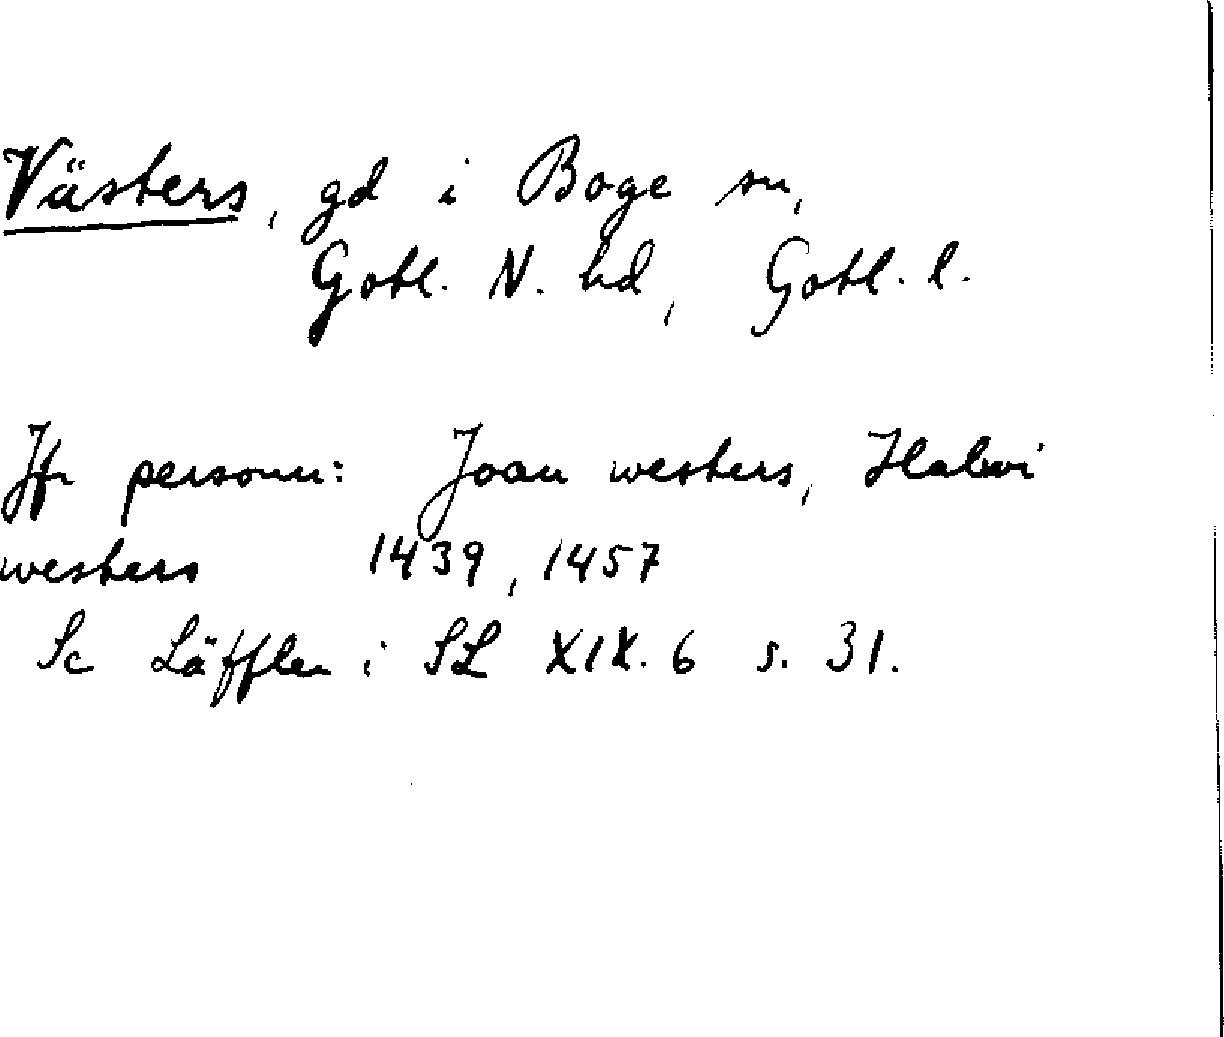 Västers, gd i Boge sn,
Gotl. N. hd, Gotl. l.
Jfr personn: Joan westers, Halwi
westers 1439, 1457
Sc Läffler i SL XIX. 6 s. 31.